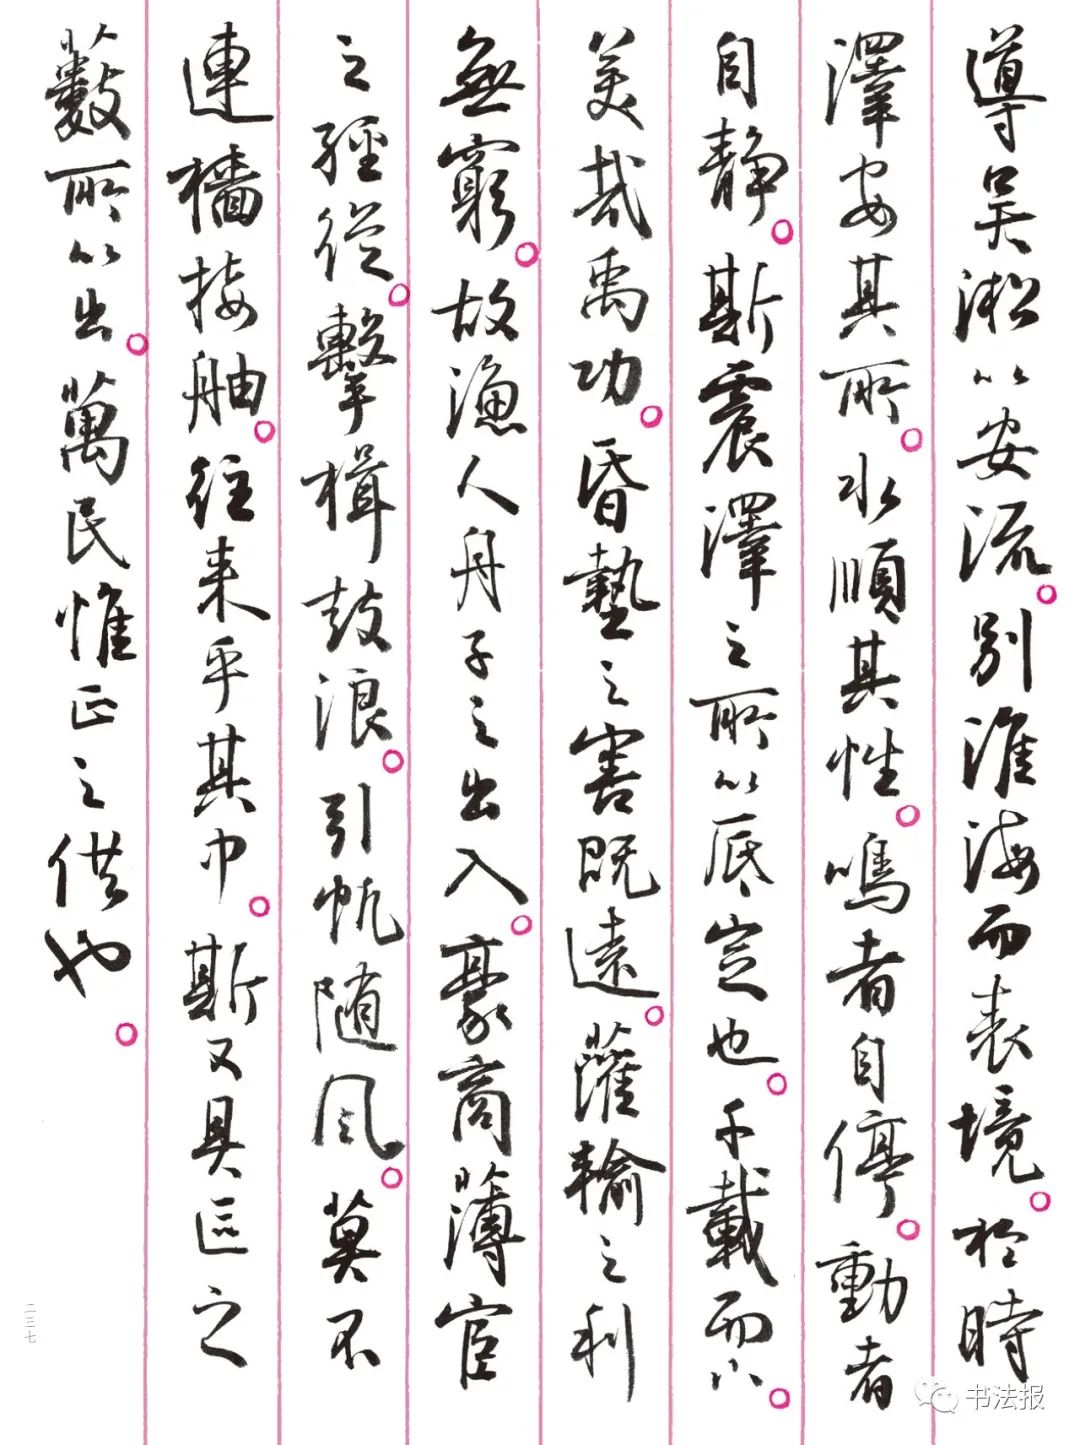 導吳淞以安流。別淮海而表境。於時震
澤安其所。水順其性。鳴者自停。動者
自靜。斯震澤之所以底定也。千載而下。
美哉禹功。昏墊之害既遠。灌輸之利
無窮。故漁人舟子之出入。豪商薄宦
之經從。擊楫鼓浪。引帆隨風。莫不
連檣接舳。往來乎其中。斯又具區之
藪所以出。萬民惟正之供也。
二三七
书法报